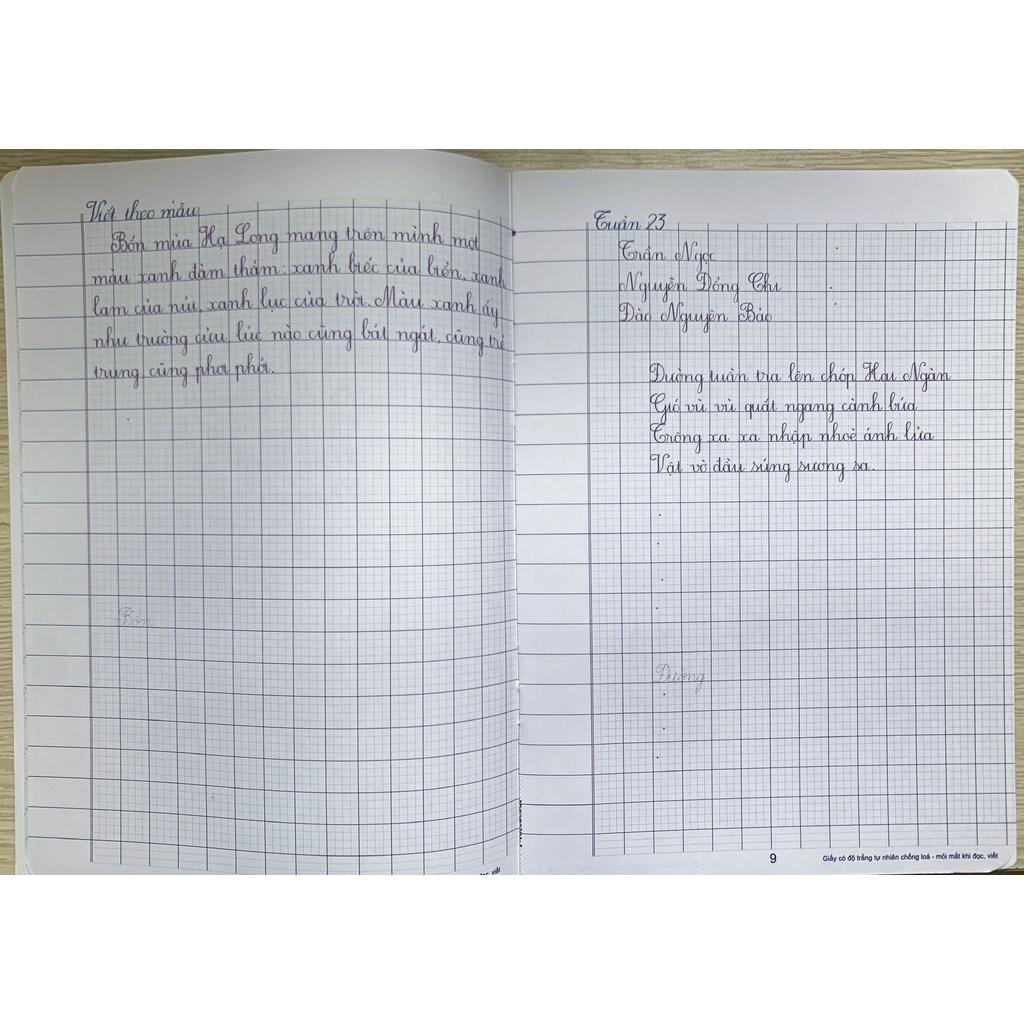 Viết theo mẫu
Bốn mùa Hạ Long mang trên mình một
màu xanh đằm thắm: xanh biếc của biển, xanh
lam của núi, xanh lục của trời. Màu xanh ấy
như trường cửu lúc nào cũng bát ngát, cũng trẻ
trung, cũng phơi phới.
Bốn
Tuần 23
Trần Ngọc
Nguyễn Đổng Chi
Đào Nguyên Bảo
Đường tuần tra lên chóp Hai Ngàn
Gió vù vù quất ngang cành bứa
Trông xa xa nhập nhoè ánh lửa
Vật vờ đầu súng sương sa.
Đường
9
Giấy có độ trắng tự nhiên chống loá - mỏi mắt khi đọc, viết
đọc, viết